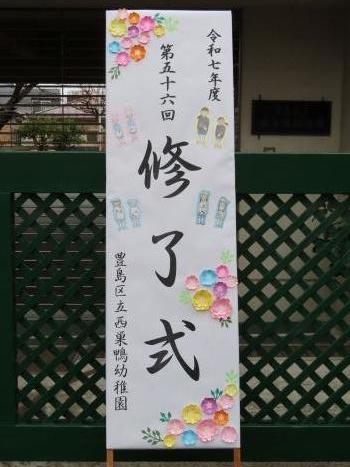 令和七年度
第五十六回
修了式
豊島区立西巣鴨幼稚園